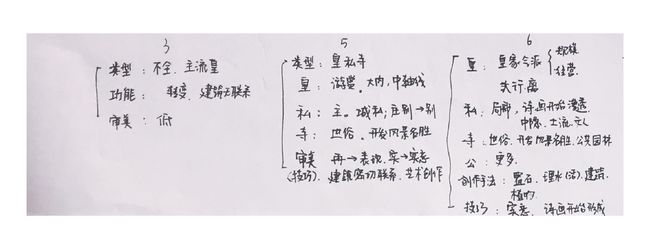 3
类型：不全、主流皇
功能：轻宴、建筑无联系
审美：低
5
类型：皇私寺
皇：游赏、大内，中轴线
私：主。城私；庄别→别
寺：世俗、开发风景名胜
审美 再→表现，实→实意
(技巧)、建筑密切联系、艺术创作
6
皇：皇家气派 规模 经营
大行离
私：局部，诗画开始
中隐、士流文人
寺：世俗、开发风景名胜，公共园林
公：更多
创作手法：置石、理水(活)、建筑、
植物
技巧：实意、诗画开始形成